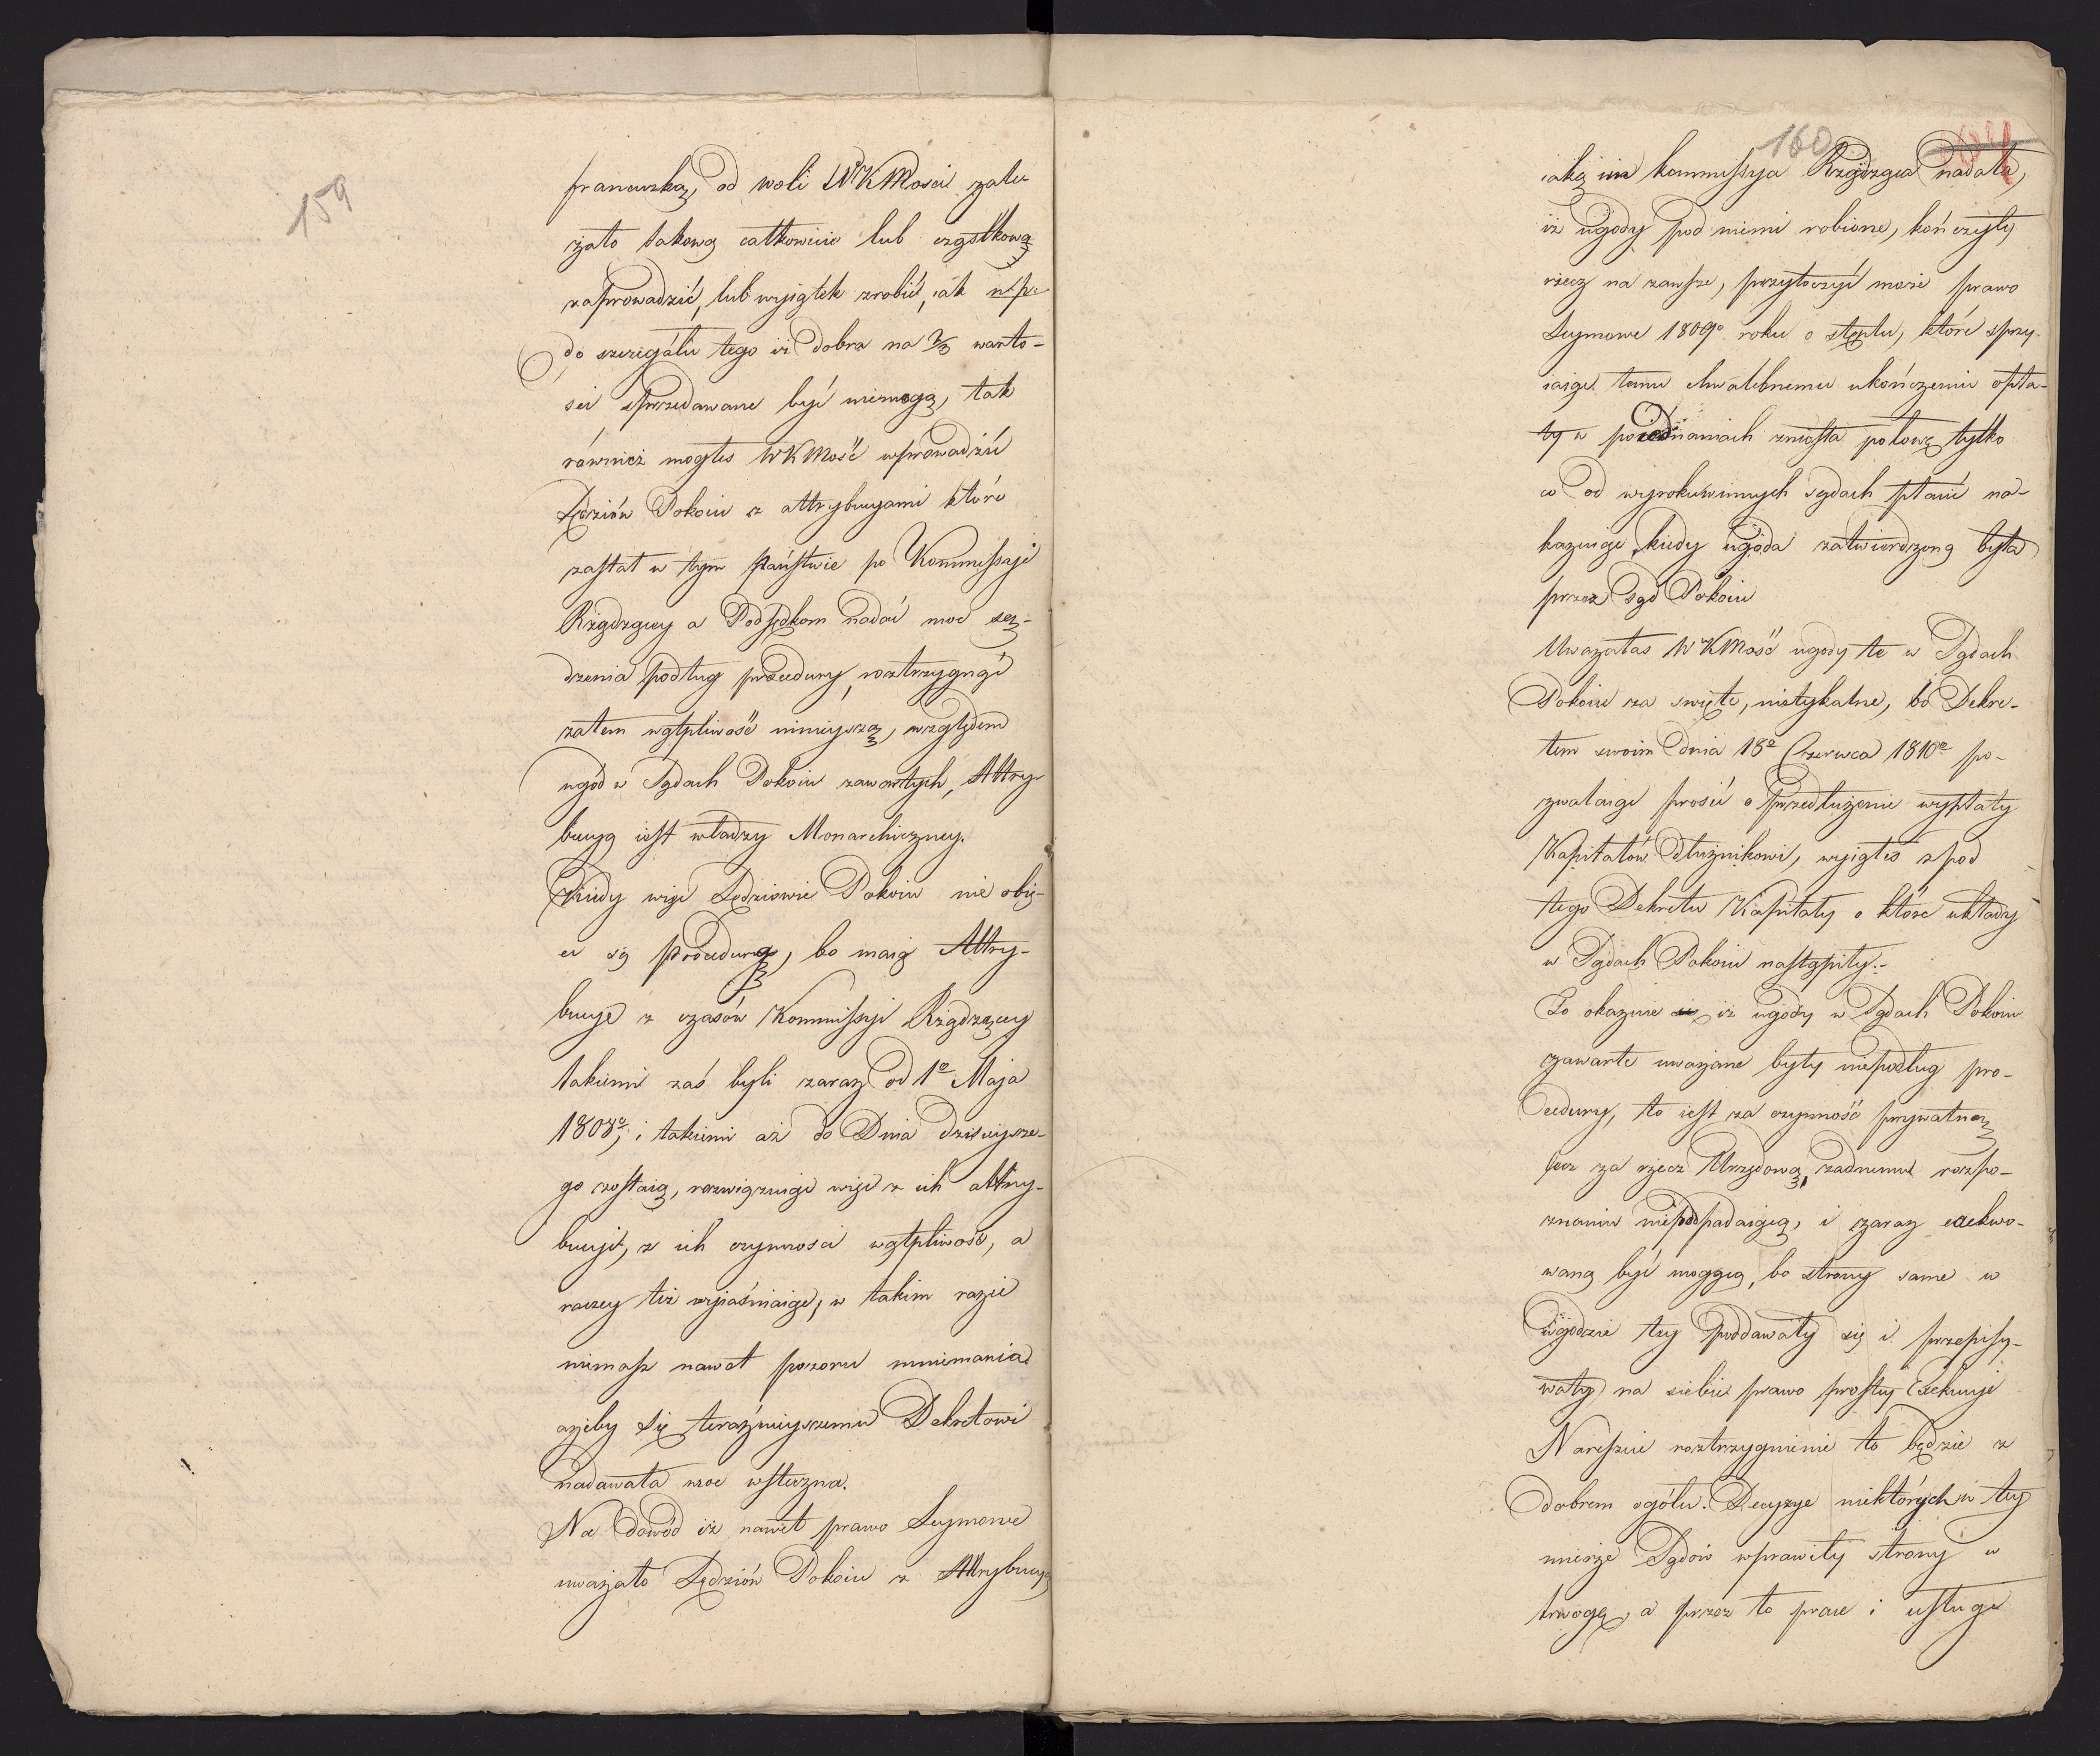 159
francuzką, od woli WKMosci zale
żało takową całkowicie lub cząstkową
zaprowadzić, lub wyiątek zrobić, iak np.
do szczegółu tego iż dobra na 2/3 warto-
sci sprzedawane być niemogą, tak
również mogłeś WKMość wprowadzić
Sędziów Pokoiu z attrybucyami które
zastał w tym państwie po Kommissyi
Rządzącey a Podsędkom nadać moc są-
dzenia podług procedury, roztrzygnąć
zatem wątpliwość ninieyszą, względem
ugód w Sądach Pokoiu zawartych, Attry-
bucyą iest władzy Monarchiczney.
Kiedy więc Sędziowie Pokoiu nie obię-
ci są procedurą, bo maią Attry-
bucye z czasów Kommissyi Rządzącey
takiemi zaś byli zaraz od 1o Maja
1808o, i takiemi aż do Dnia dzisieysze-
go zostaią, rozwiązuiąc więc z ich attry-
bucyi, z ich czynnosci wątpliwość, a
raczey też wyiaśniaiąc, w takim razie
niemasz nawet pozoru mniemania
ażeby się teraźnieyszemu Dekretowi
nadawała moc wsteczna.
Na dowód iż nawet prawo Seymowe
uważało Sędziów Pokoiu z Attrybucyą
160
iaką im kommissya Rządząca nadała,
iż ugody pod niemi robione, kończyły
rzecz na zawsze, przytoczyć może prawo
Seymowe 1809o roku o stęplu, które sprzy-
iaiąc temu chwalebnemu ukończeniu opła-
ty w poiednaniach zniosła połowę tylko
co od wyroku w innych sądach płacić na-
kazuiąc, kiedy ugoda zatwierdzoną była
przez Sąd Pokoiu
Uważałas WKMość ugody te w Sądach
Pokoiu za swięte, nietykalne, bo Dekre-
tem swoim dnia 18o Czerwca 1810o po-
zwalaiąc prosić o przedłużenie wypłaty
Kapitałów dłużnikowi, wyiąłeś z pod
tego Dekretu Kapitały o które układy
w Sądach Pokoiu nastąpiły.-
To okazuie się iż ugody w Sądach Pokoiu
zawarte uważane były niepodług pro-
cedury, to iest za czynność prywatną
lecz za rzecz Urzędową, żadnemu rozpo-
znaniu niepodpadaiącą, i zaraz exekwo-
waną być mogącą, bo strony same w
ugodzie tey poddawały się i przepisy-
wały na siebie prawo prostey Exekucyi
Nareszcie roztrzygnienie to będzie z
dobrem ogółu. Decyzye niektórych w tey
mierze Sądów wprawiły strony w
trwogę, a przez to prace i usługi